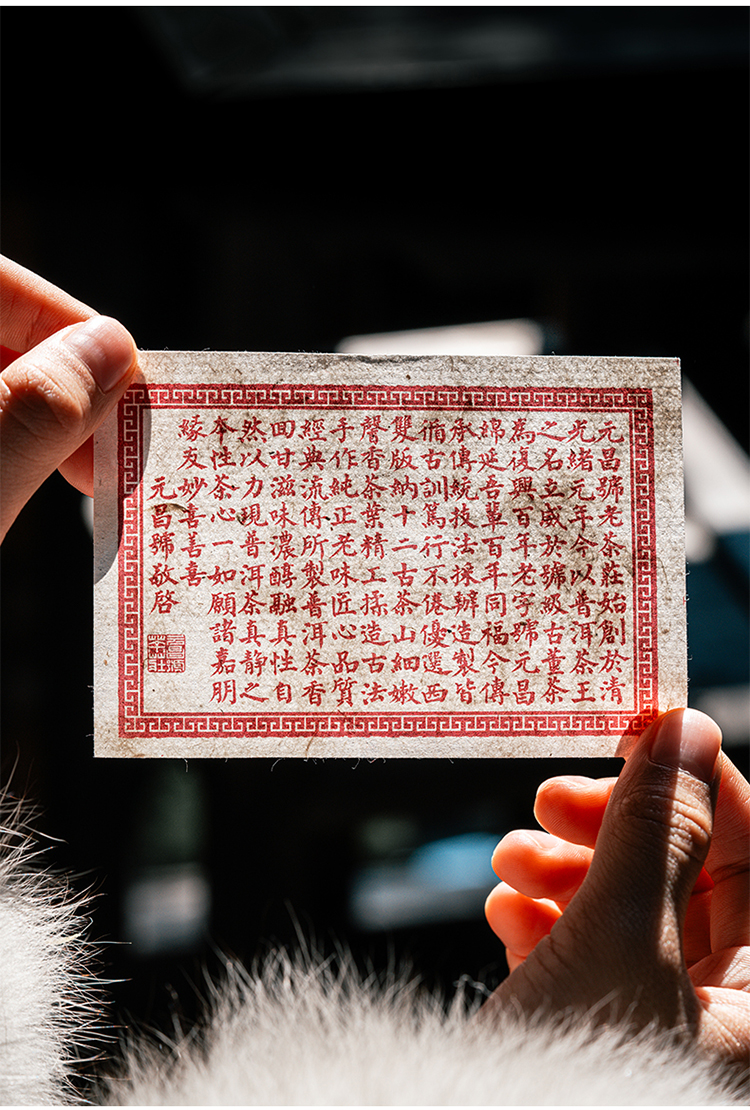 元昌號老茶莊始創於清
光緒元年今以普洱茶王
之名立威於號級古董茶
為復興百年老字號元昌
綿延吾輩百年同福今傳
承傳統技法採辦造製皆
循古訓篤行不倦優選西
雙版納十二古茶山細嫩
馨香茶葉精工揉造古法
手作純正老味匠心品質
經典流傳所製普洱茶香
回甘滋味濃醇融真性自
然以力現普洱茶真靜之
本性茶心一如願諸嘉朋
緣友妙喜善喜
元昌號敬啓